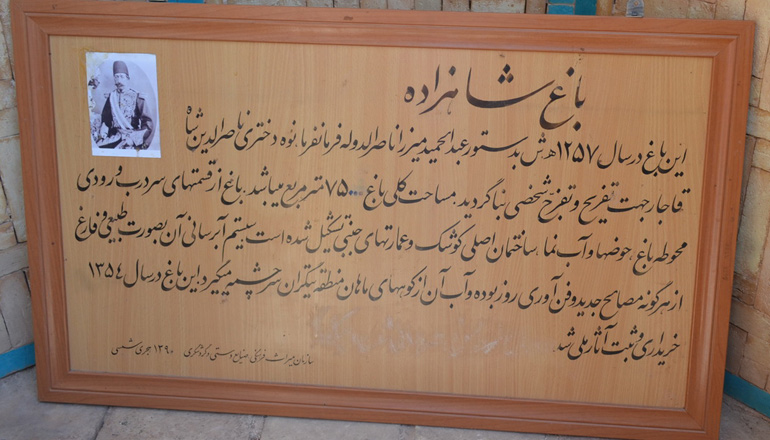 باغ شاهزاده
این باغ در سال ۱۲۵۷ ه ش بدستور عبدالحمید میرزا ناصرالدوله فرمانفرما نوه دختری ناصرالدین شاه
قاجار جهت تفریح و تفرج شخصی بنا گردید. مساحت کلی باغ ۷۵۰۰۰ متر مربع میباشد. باغ از قسمتهای سردرب ورودی
محوطه باغ، حوضها و آب نما، ساختمان اصلی کوشک و عمارتهای جنبی تشکیل شده است سیستم آبرسانی آن بصورت طبیعی و فارغ
از هرگونه مصالح جدید و فن آوری روز بوده و آب آن از کوههای ماهان منطقه تیگران سرچشمه میگیرد، این باغ در سال ۱۳۵۴
خریداری و ثبت آثار ملی شد.
سازمان میراث فرهنگی، صنایع دستی و گردشگری ۱۳۹۰ هجری شمسی